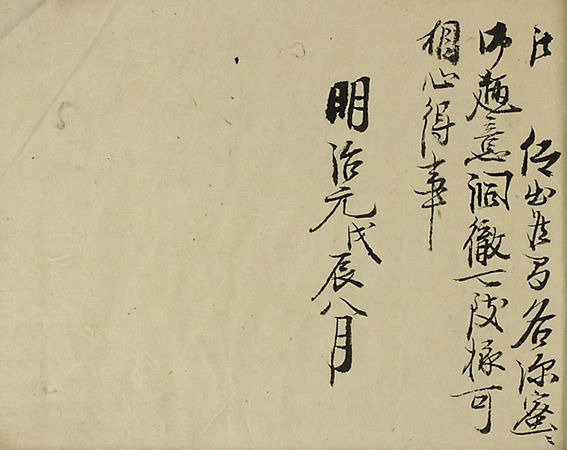 仰出候間各深
御趣意洞徹様可
相心得事
明治元戊辰八月